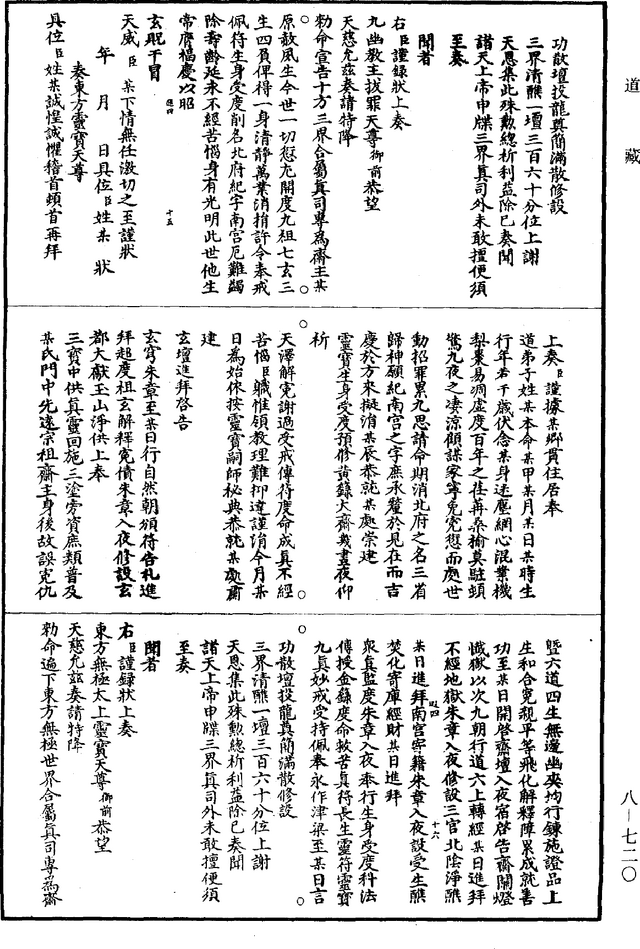 道藏
功散壇投龍奠簡滿散修設
三界清醮一壇三百六十分位上謝
天恩集此殊勳總祈利益除已奏聞
諸天上帝申牒三界真司外未敢擅便須
至奏
聞者
右臣謹錄狀上奏
九幽教主拔罪天尊御前恭望
天慈允茲奏請特降
勑命宣告十方三界合屬真司專為齋主某
原赦夙生今世一切愆尤開度九祖七玄三
生四負俾得一身清靜萬業消捐許令奉戒
佩符生身受度削名北府紀字南宮厄難蠲
除壽齡延永不經苦惱身有光明此世他生
常膺福慶以昭
玄貺干冒
天威臣某下情無任激切之至謹狀
年月日具位臣姓某狀
奏東方靈寶天尊
具位臣姓某誠惶誠懼稽首頓首再拜
上奏臣謹據某鄉貫住居奉
道弟子姓某本命某甲某月某日某時生
行年若干歲伏念某身迷塵網心混業機
梨棗易凋虛度百年之荏苒桑榆莫駐頓
驚九夜之凄涼顧謀家寧免冤愆而處世
動招罪累九思請命期消北府之名三省
歸神願紀南宮之字庶承釐於見在而吉
慶於方來擬消某辰恭就某處崇建
靈寶生身受度預修黃籙大齋幾晝夜仰
祈
天澤解冤謝過受戒傳符度命成真不經
苦惱臣職惟領教理難抑違謹涓今月某
日為始依按靈寶嗣師秘典恭就某處肅
建
玄壇進拜啓告
玄穹朱章至某日行自然朝頒符告札進
拜超度祖玄解釋冤債朱章入夜修設玄
都大獻玉山淨供上奉
三寶中供真靈回施三塗旁資庶類普及
某氏門中先遠宗祖齋主身後故誤冤仇
暨六道四生無邊幽爽均行鍊施證品上
生和合冤親平等飛化解釋障累成就善
功至某日開啓齋壇入夜宿啓告齋關燈
懺獄以次九朝行道六上轉經某日進拜
不經地獄朱章入夜修設三官北陰淨醮
某日進拜南宮寄籍朱章入夜設受生醮
焚化寄庫經財某日進拜
眾真監度朱章入夜奉行生身受度科法
傳授金籙度命救苦真符長生靈符靈寶
九真妙戒受持佩奉永作津梁至某日言
功散壇投龍奠簡滿散修設
三界清醮一壇三百六十分位上謝
天恩集此殊勳總祈利益除已奏聞
諸天上帝申牒三界真司外未敢擅便須
至奏
聞者
右臣謹錄狀上奏
東方無極太上靈寶天尊御前恭望
天慈允茲奏請特降
勑命遍下東方無極世界合屬真司專為齋
八—七二〇